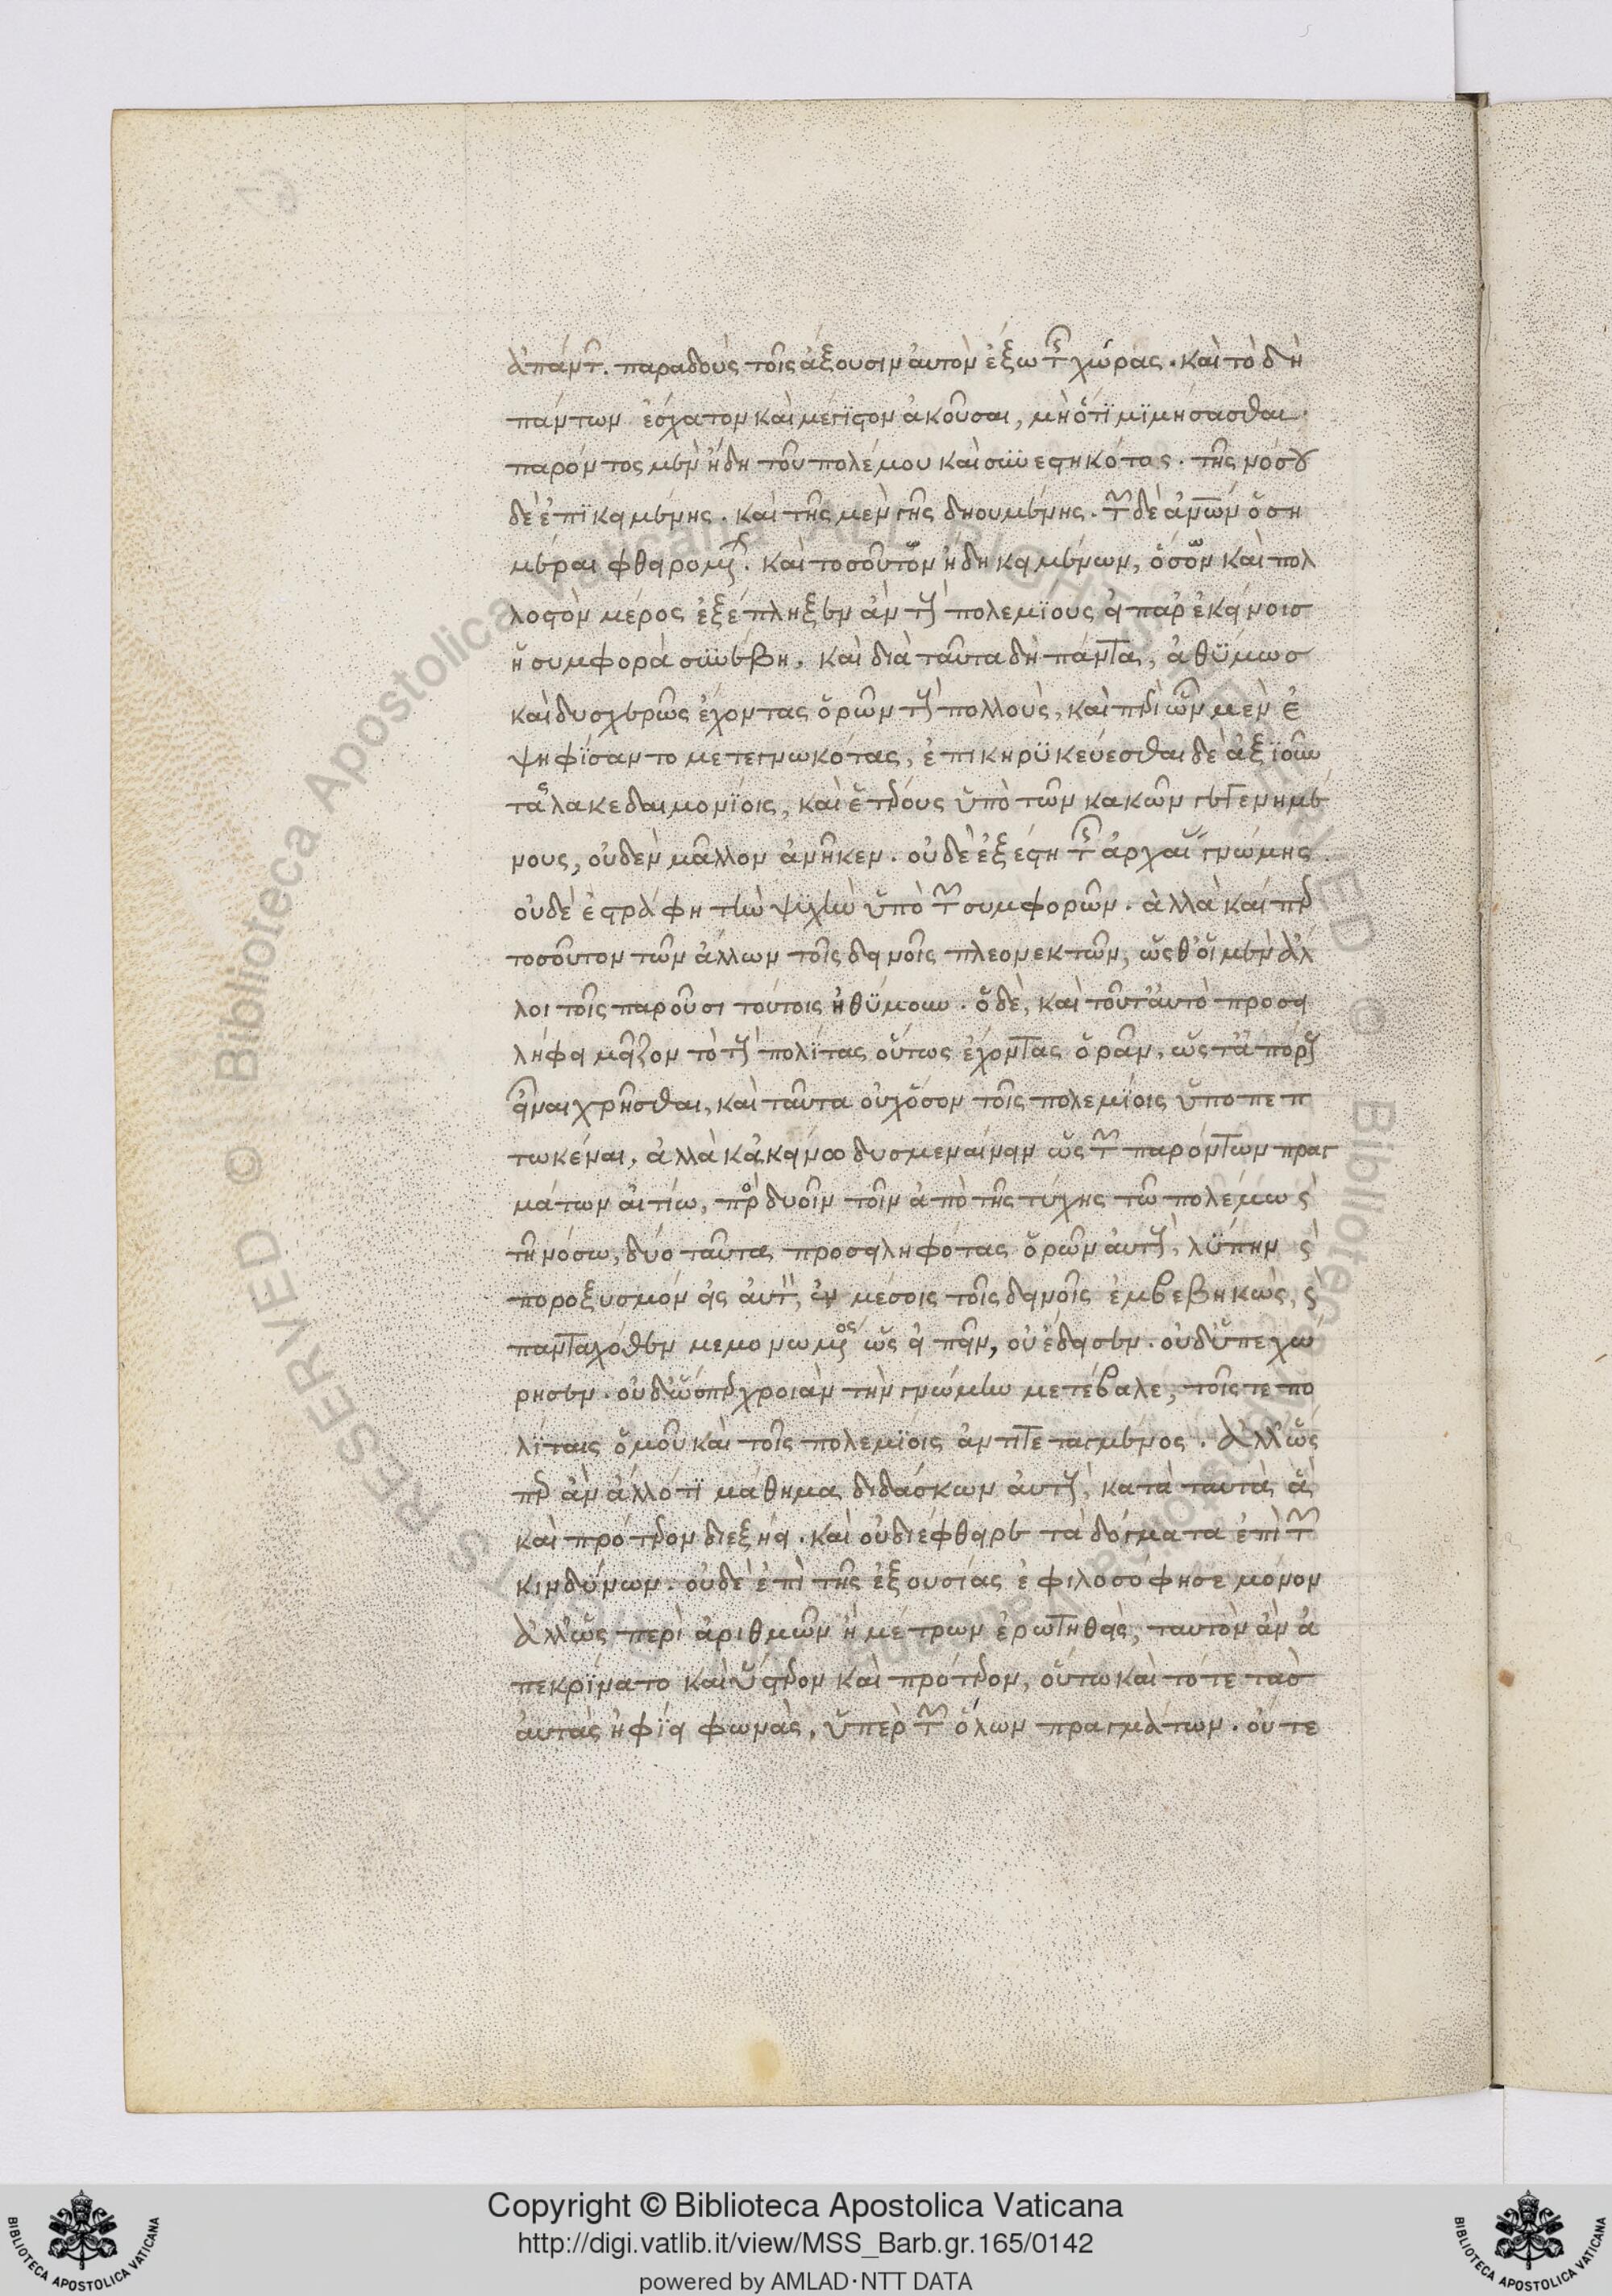 ἁπάντ. παραδοὺς τοῖς ἄξουσιν αὐτὸν ἔξω τῆς χώρας. καὶ τὸ δὴ
πάντων ἔσχατον καὶ μέγιστον ἀκοῦσαι, μὴ ὅτι μιμήσασθαι.
παρόντος μὲν ἤδη τοῦ πολέμου καὶ συνεστηκότος. τῆς νόσου
δὲ ἐπικειμένης. καὶ τῆς μὲν γῆς δῃουμένης. τῶν δὲ ἀνων ὅση
μέραι φθειρομένων. καὶ τοσούτων ἤδη κειμένων, ὅσων καὶ πολ
λοστὸν μέρος ἐξέπληξεν ἂν τοὺς πολεμίους εἰ παρ' ἐκείνοις
ἡ συμφορὰ συνέβη. καὶ διὰ ταῦτα δὴ πάντα, ἀθύμως
καὶ δυσχερῶς ἔχοντας ὁρῶν τοὺς πολλοὺς, καὶ περὶ ὧν μὲν ἐ
ψηφίσαντο μετεγνωκότας, ἐπικηρυκεύεσθαι δὲ ἀξιοῦν
τας λακεδαιμονίοις, καὶ ἑτέρους ὑπὸ τῶν κακῶν γεγενημέ
νους, οὐδὲν μᾶλλον ἀνῆκεν. οὐδὲ ἐξέστη τῆς ἀρχαίας γνώμης
οὐδὲ ἐστράφη τὴν ψυχὴν ὑπὸ τῶν συμφορῶν. ἀλλὰ καὶ περ
τοσοῦτον τῶν ἄλλων τοῖς δεινοῖς πλεονεκτῶν, ὥσθ' οἱ μὲν ἄλ
λοι τοῖς παροῦσι τούτοις ἠθύμουν. ὁ δὲ, καὶ τοῦτ' αὐτὸ προσει
λήφει μεῖζον τὸ τοὺς πολίτας οὕτως ἔχοντας ὁρᾶν, ὥστ' ἀπόρους
εἶναι χρῆσθαι, καὶ ταῦτα οὐχ ὅσον τοῖς πολεμίοις ὑποπεπ
τωκέναι, ἀλλὰ κἀκείνω δυσμεναίνειν ὡς τῶν παρόντων πραγ
μάτων αἰτίω, πρὸς δυοῖν τοῖν ἀπὸ τῆς τύχης τῶ πολέμω καὶ
τῆ νόσω, δύο ταῦτα προσειληφότας ὁρῶν αὐτοὺς, λύπην καὶ
παροξυσμὸν εἰς αὐτὸν, ἐν μέσοις τοῖς δεινοῖς ἐμβεβηκὼς, καὶ
πανταχόθεν μεμονωμένος ὡς εἰπεῖν, οὐκ ἔδεισεν. οὐδ' ὑπεχώ
ρησεν. οὐδ' ὥσπερ χροιὰν τὴν γνώμην μετέβαλε, τοῖς τε πο
λίταις ὁμοῦ καὶ τοῖς πολεμίοις ἀντιτεταγμένος. ἀλλ' ὥς
περ ἂν ἄλλό τι μάθημα διδάσκων αὐτοὺς, κατὰ ταυτὰ ἃ
καὶ πρότερον διεξήει. καὶ οὐ διέφθειρε τὰ δόγματα ἐπὶ τῶν
κινδύνων. οὐδὲ ἐπὶ τῆς ἐξουσίας ἐφιλοσόφησε μόνον
ἀλλ' ὡς περὶ ἀριθμῶν ἢ μέτρων ἐρωτηθεὶς, ταυτὸν ἂν ἀ
πεκρίνατο καὶ ὕστερον καὶ πρότερον, οὕτω καὶ τότε τὰς
αὐτὰς ἠφίει φωνὰς, ὑπὲρ τῶν ὅλων πραγμάτων. οὔτε
Copyright © Biblioteca Apostolica Vaticana
http://digi.vatlib.it/view/MSS_Barb.gr.165/0142
powered by AMLAD·NTT DATA